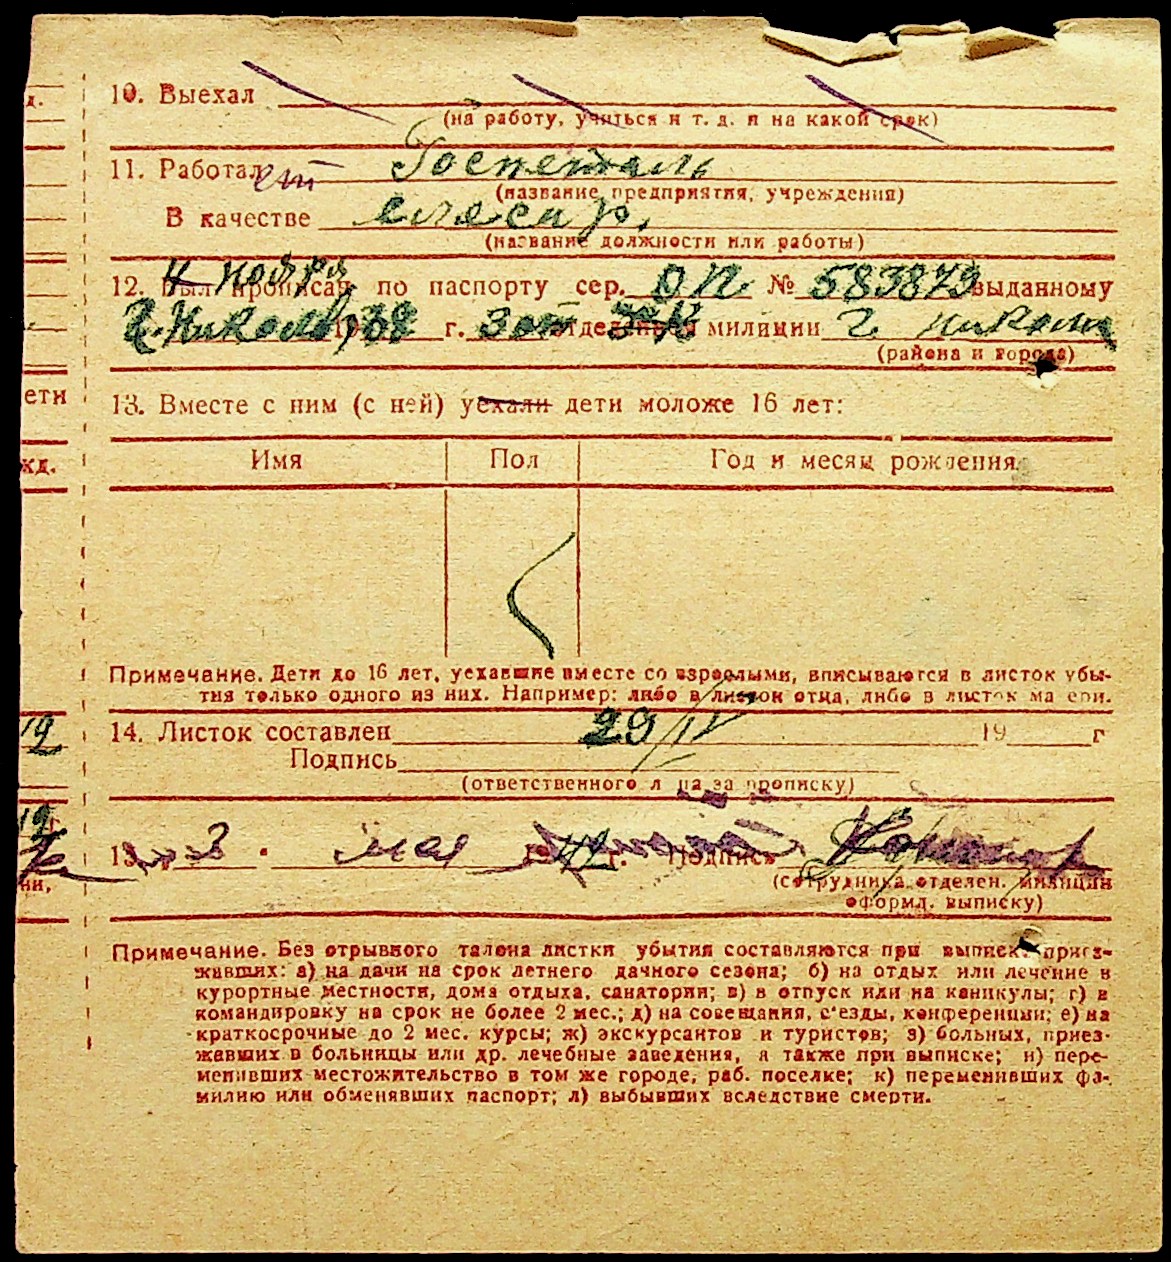 д.
10. Выехал
(на работу, учиться и т. д. и на какой срок)
11. Работал ет Госпеталь
(название предприятия, учреждения)
В качестве слесар.
(название должности или работы)
4 ноября
12. Был прописан по паспорту сер. ОП № 583879 выданному
г. 3 от отделением милиции г. Николаев
(района и города)
ети
13. Вместе с ним (с ней) уехали дети моложе 16 лет:
жд.
Имя Пол Год и месяц рождения
Примечание. Дети до 16 лет, уехавшие вместе со взрослыми, вписываются в листок убы-
тия только одного из них. Например: либо в листок отца, либо в листок ма ери.
19
14. Листок составлен 29/IV 19 г
Подпись
(ответственного л ца за прописку)
19
15. 3 мая г. Подпись
(сотрудника отделен. милиции
ии,
оформл. выписку)
Примечание. Без отрывного талона листки убытия составляются при выписке приез-
жавших: а) на дачи на срок летнего дачного сезона; б) на отдых или лечение в
курортные местности, дома отдыха, санатории; в) в отпуск или на каникулы; г) в
командировку на срок не более 2 мес.; д) на совещания, с'езды, конференции; е) на
краткосрочные до 2 мес. курсы; ж) экскурсантов и туристов; з) больных, приез-
жавших в больницы или др. лечебные заведения, а также при выписке; и) пере-
менивших местожительство в том же городе, раб. поселке; к) переменивших фа-
милию или обменявших паспорт; л) выбывших вследствие смерти.